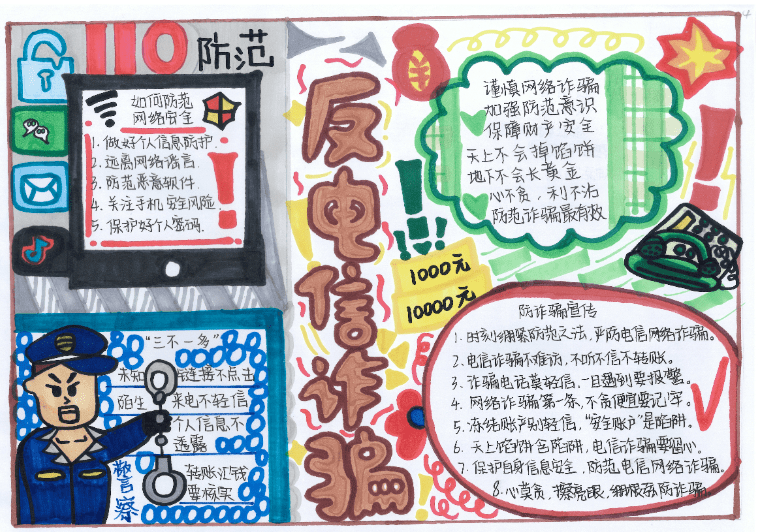 110
防范
如何防范
网络安全
1. 做好个人信息防护.
2. 远离网络谣言.
3. 防范恶意软件.
4. 关注手机安全风险.
5. 保护好个人密码.
“三不一多”
未知链连接不点击
陌生来电不轻信
个人信息不
透露
转账汇钱
要核实
警察
反电信诈骗
¥
谨慎网络诈骗
加强防范意识
保障财产安全
天上不会掉馅饼
地下不会长黄金
心不贪，利不沾
防范诈骗最有效
1000元
10000元
防诈骗宣传
1. 时刻绷紧防范之法，严防电信网络诈骗。
2. 电信诈骗不难防，不听不信不转账。
3. 诈骗电话莫轻信，一旦遇到要报警。
4. 网络诈骗第一条，不贪便宜要记牢。
5. 冻结账户别轻信，“安全账户”是陷阱。
6. 天上馅饼含陷阱，电信诈骗要留心。
7. 保护自身信息安全，防范电信网络诈骗。
8. 心莫贪，擦亮眼，绷诈骗。